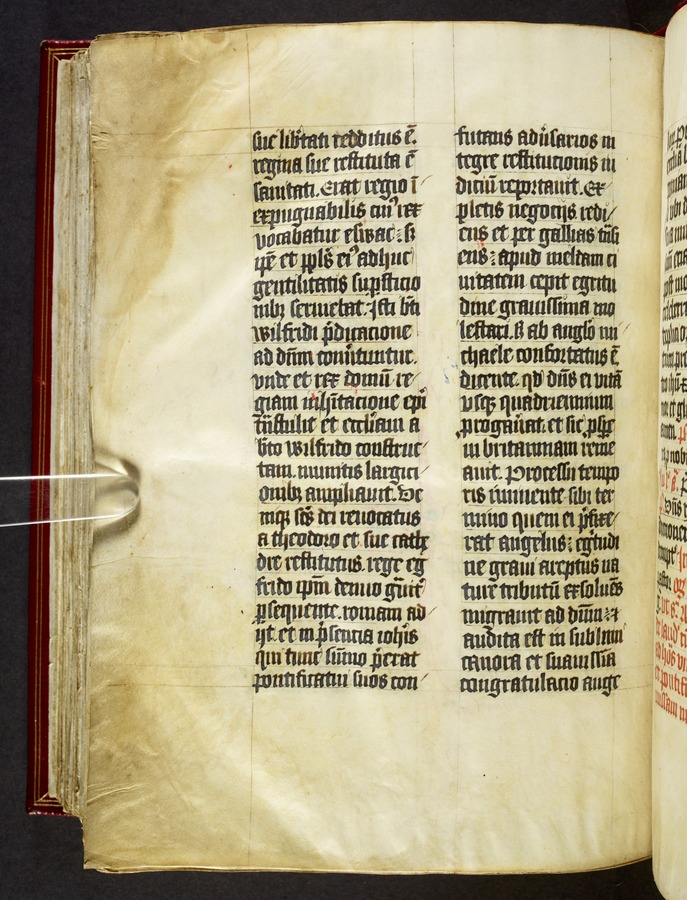 sue lib̄tati redditus ē.
regina sue restituta ē
sanitati. Erat regio ī
expugnabilis cui᷒ rex
vocabatur eswac: sꝫ
ip̄e et pp̄ls ei᷒ adhuc
gentilitatis sup̄sticio
nibꝫ seruiebat. Isti bt̄i
wilfridi p̄dicacione
ad dn̄m conu̓tuntur.
vnde et rex domū re
giam
tn̄stulit et eccl̓iam a
bt̄o wilfrido construc
tam. munitis largici
onibꝫ ampliauit. De
mꝗ scs̄ dei reuocatus
a theodoro et sue cathe
dre restitutus. rege eg
frido ip̄m denuo gͣuit᷒
ꝑsequente. romam ad
ijt. et in p̄sencia ioh̄is
qui tunc sūmo p̄erat
pontificatui suos con
futans adu̓sarios in
tegre restitucionis in
diciū reportauit. Ex
pletis negocijs redi
ens et per gallias tn̄si
ens: apud meltam ci
uitatem cepit egritu
dine grauissima mo
lestari. sꝫ ab angl̓o mi
chaele confortatus ē
dicente. qd̄ dn̄s ei vitā
vsqꝫ quadriennium
ꝓrogauerat. et sic ꝓspe
in britanniam reme
auit. Processu tempo
ris inminente sibi ter
mino quem ei p̄fixe
rat angelus: eg̓tudi
ne graui areptus na
ture tributū exsoluēs
migrauit ad dn̄m: ⁊
audita est in sublimi
canora et suauissīa
congratulacio ange